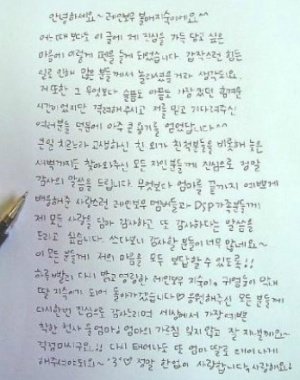 안녕하세요~ 레인보우 불여지숙이에요^^
어느 때보다도 이 글에 제 진심을 가득 담고 싶은
마음에 이렇게 펜을 들게 되었습니다. 갑작스런 힘든
일로 인해 많은 분들께서 놀라셨을거라 생각돼요.
저 또한 그 무엇보다 슬픔도 아픔도 가장 컸던 힘겨운
시간이었지만 격려해주시고 저를 믿고 기다려주신
여러분들 덕분에 아주 큰 용기를 얻었답니다^^
몇일 지나라 고생하신 친 외가 친척분들을 비롯해 늦은
새벽까지도 찾아와주신 모든 지인분들께 진심으로 정말
감사의 말씀을 드립니다. 무엇보다 엄마를 끝까지 예쁘게
배웅해주신 사랑스런 레인보우 멤버들과 DSP가족분들께
제 모든 사랑을 담아 감사하고 또 감사하다는 말씀을
드리고 싶습니다. 쓰다보니 감사할 분들이 너무 많네요~
이 모든 분들께 저의 마음을 모두 보답할 수 있도록!!
하루빨리 다시 밝고 명랑한 레인보우 지숙이, 귀염둥이 막내
딸 지숙이가 되어 돌아가겠습니다♡ 응원해주신 모든 분들께
다시한번 진심으로 감사드리며 세상에서 가장 예쁜
착한 천사 울엄마! 엄마의 가르침 잊지 않고 잘 지낼께요~
걱정마시구요!! 다시 태어나도 또 엄마 딸로 태어나게
해주셔야되요~ '3'♡ 정말 한없이 사랑합니다 사랑해요!